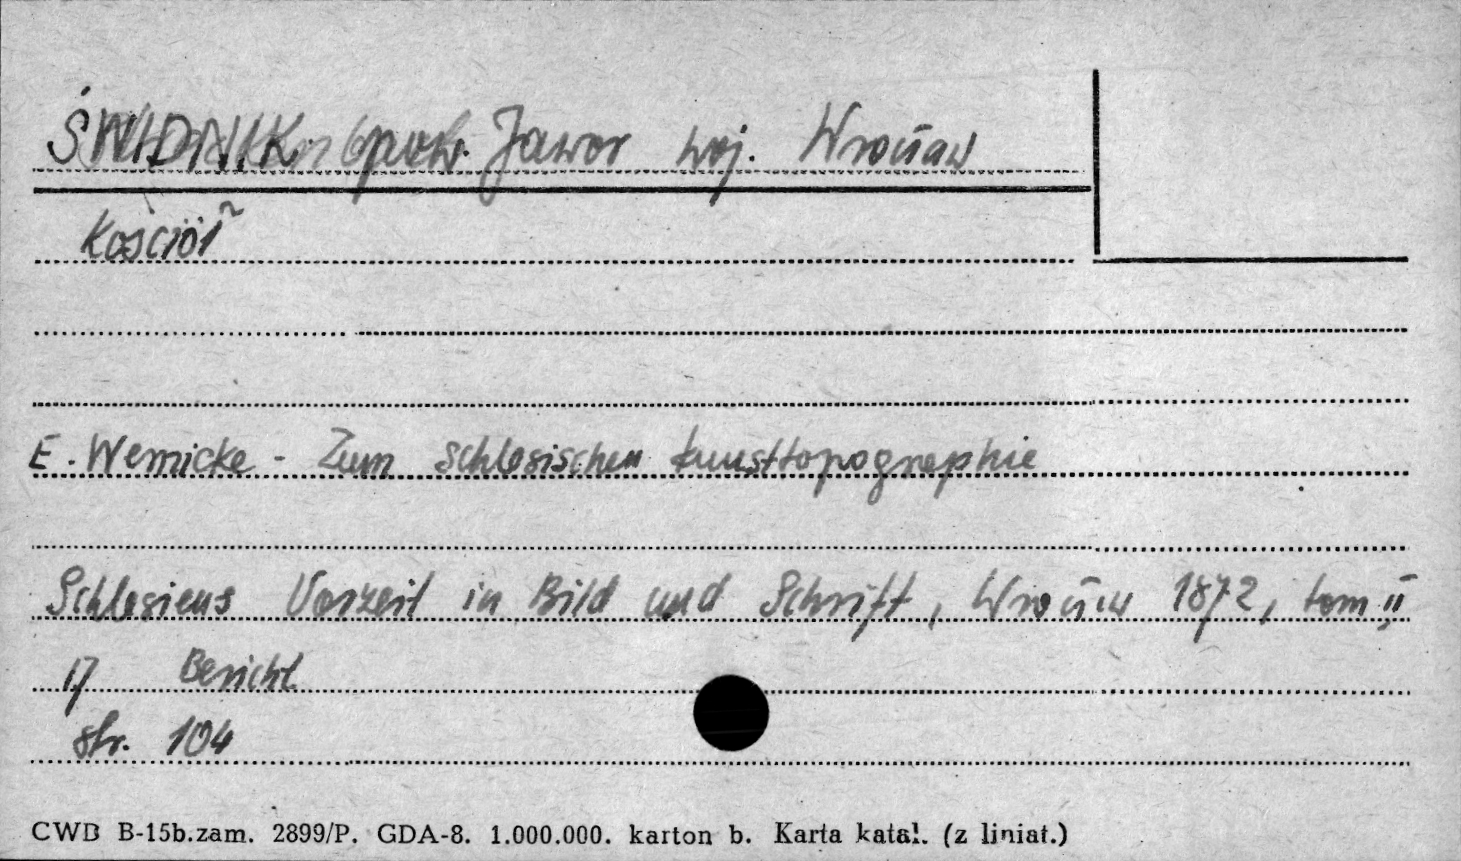 ŚWIDNIK pow. Jawor woj. Wrocław
Kościół
E. Wernicke - Zum schlesischen kunsttopographie
Schlesiens Vorzeit in Bild und Schrift, Wrocław 1872, tom II
17 Bericht
str. 104
CWD B-15b.zam. 2899/P. GDA-8. 1.000.000. karton b. Karta katal. (z liniat.)